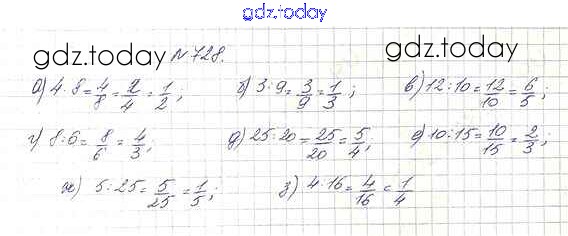 gdz.today
gdz.today N 728. gdz.today
а) 4:8=4/8=2/4=1/2; б) 3:9=3/9=1/3; в) 12:10=12/10=6/5;
г) 8:6=8/6=4/3; д) 25:20=25/20=5/4; е) 10:15=10/15=2/3;
ж) 5:25=5/25=1/5; з) 4:16=4/16=1/4